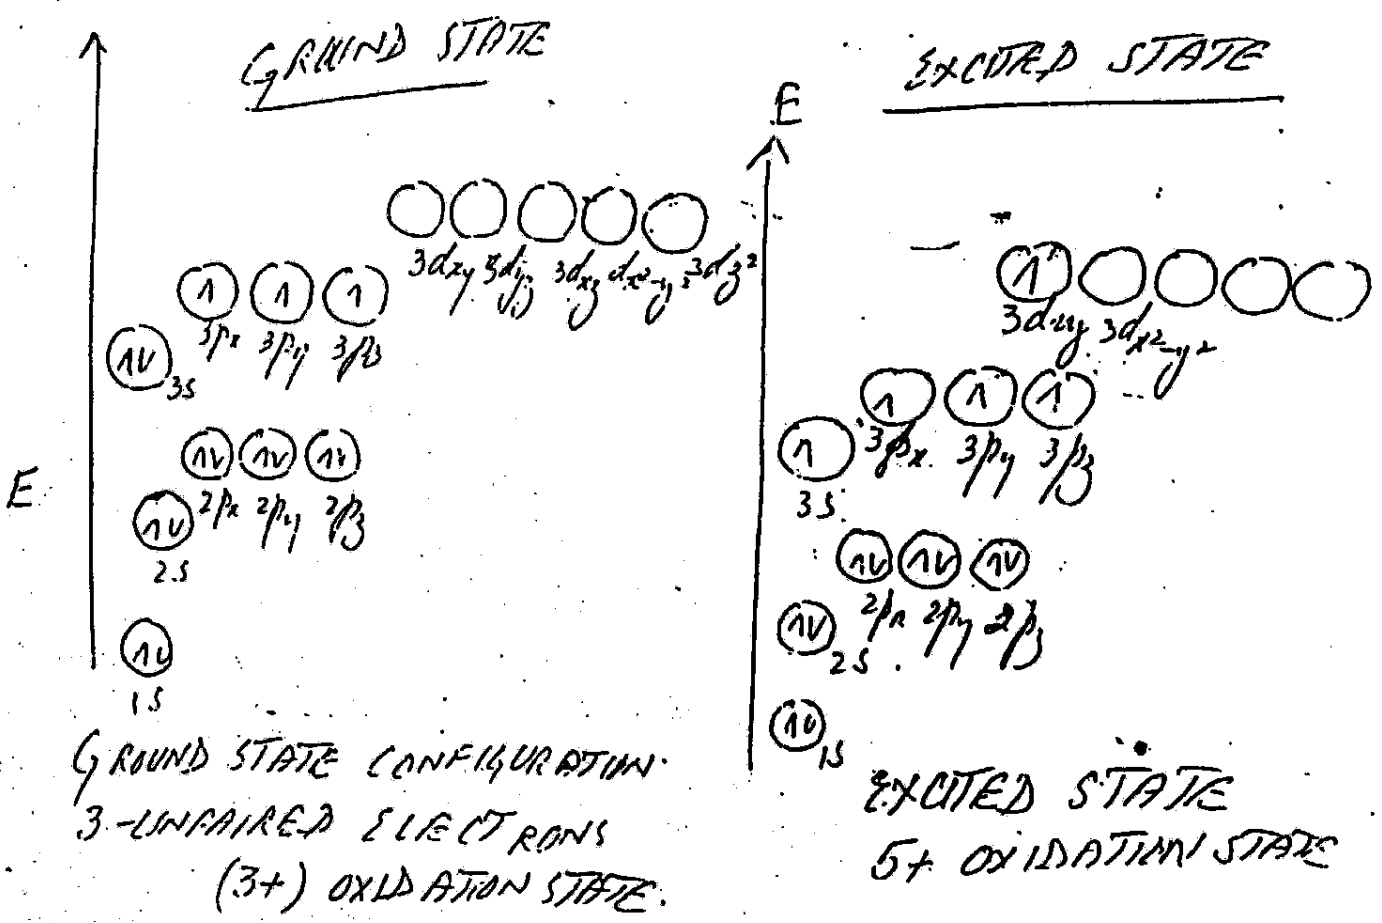 GROUND STATE
3dxy 3dyz 3dxz dx²-y² 3dz²
1 1 1
3px 3py 3pz
1v
3s
1v 1v 1v
2px 2py 2pz
E
1v
2s
1v
1s
GROUND STATE CONFIGURATION.
3-UNPAIRED ELECTRONS
(3+) OXIDATION STATE.
EXCITED STATE
E
1
3dxy 3dx²-y²
1 1 1
3px 3py 3pz
1
3s
1v 1v 1v
2px 2py 2pz
1v
2s
1v
1s
EXCITED STATE
5+ OXIDATION STATE